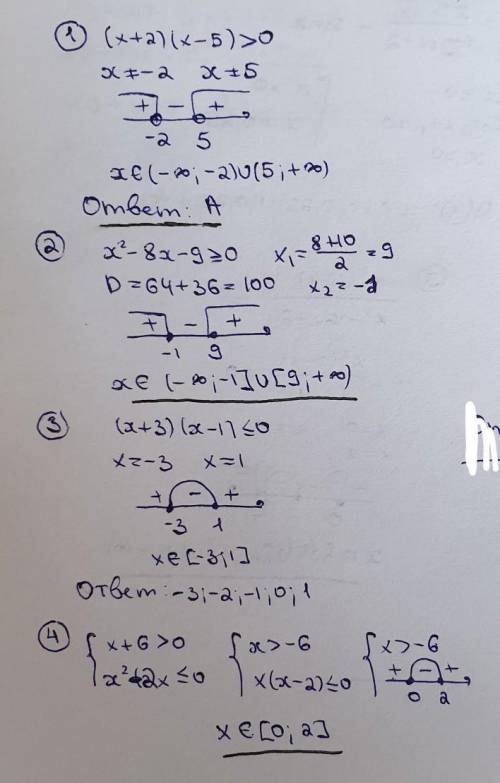 ① (x+2)(x-5)>0
x≠-2 x≠5
+ - +
-2 5
x∈(-∞;-2)∪(5;+∞)
Ответ: А
② x²-8x-9≥0 x₁=(8+10)/2=9
D=64+36=100 x₂=-1
+ - +
-1 9
x∈ (-∞;-1]∪[9;+∞)
③ (x+3)(x-1)≤0
x=-3 x=1
+ - +
-3 1
x∈[-3;1]
Ответ: -3;-2;-1;0;1
④ { x+6>0 { x>-6 { x>-6
x²-2x≤0 x(x-2)≤0 + - +
0 2
x∈[0;2]